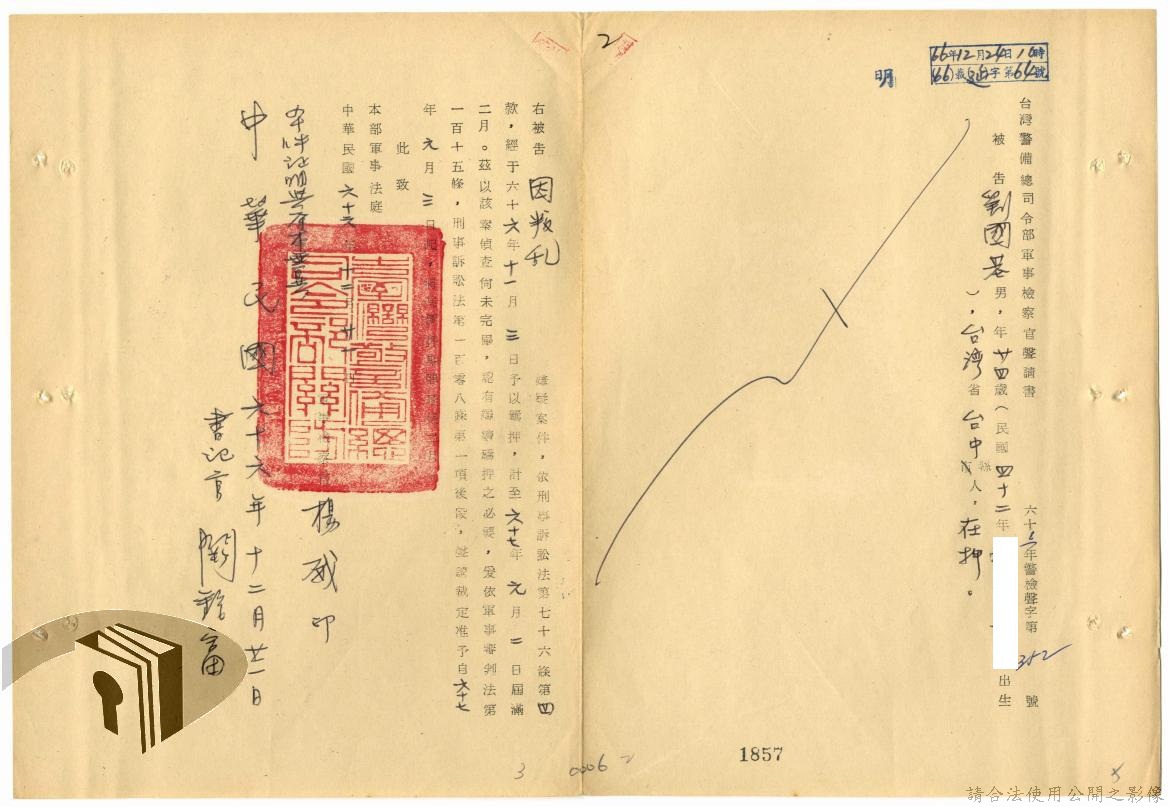 66年12月24日10時
(66)裁延字第64號
明
2
台灣警備總司令部軍事檢察官聲請書
六十6年警檢聲字第352號
被告劉國基男,年廿四歲(民國四十二年
出生),台灣省台中縣市人。在押。
右被告因叛乱嫌疑案件,依刑事訴訟法第七十六條第四
款,經于六十六年十一月三日予以羈押,計至六十七年元月二日屆滿
二月。茲以該案偵查尚未完畢,認有繼續羈押之必要,爰依軍事審判法第
一百十五條,刑事訴訟法第一百零八條第一項後段,聲請裁定准予自六十七
年元月三日起,
此致
本部軍事法庭
中華民國六十六年十二月廿
楊威印
本件証明與原本無異
中華民國六十六年十二月廿一日
書記官
臺灣警備總司令部關防
1857
3
0006
請合法使用公開之影像